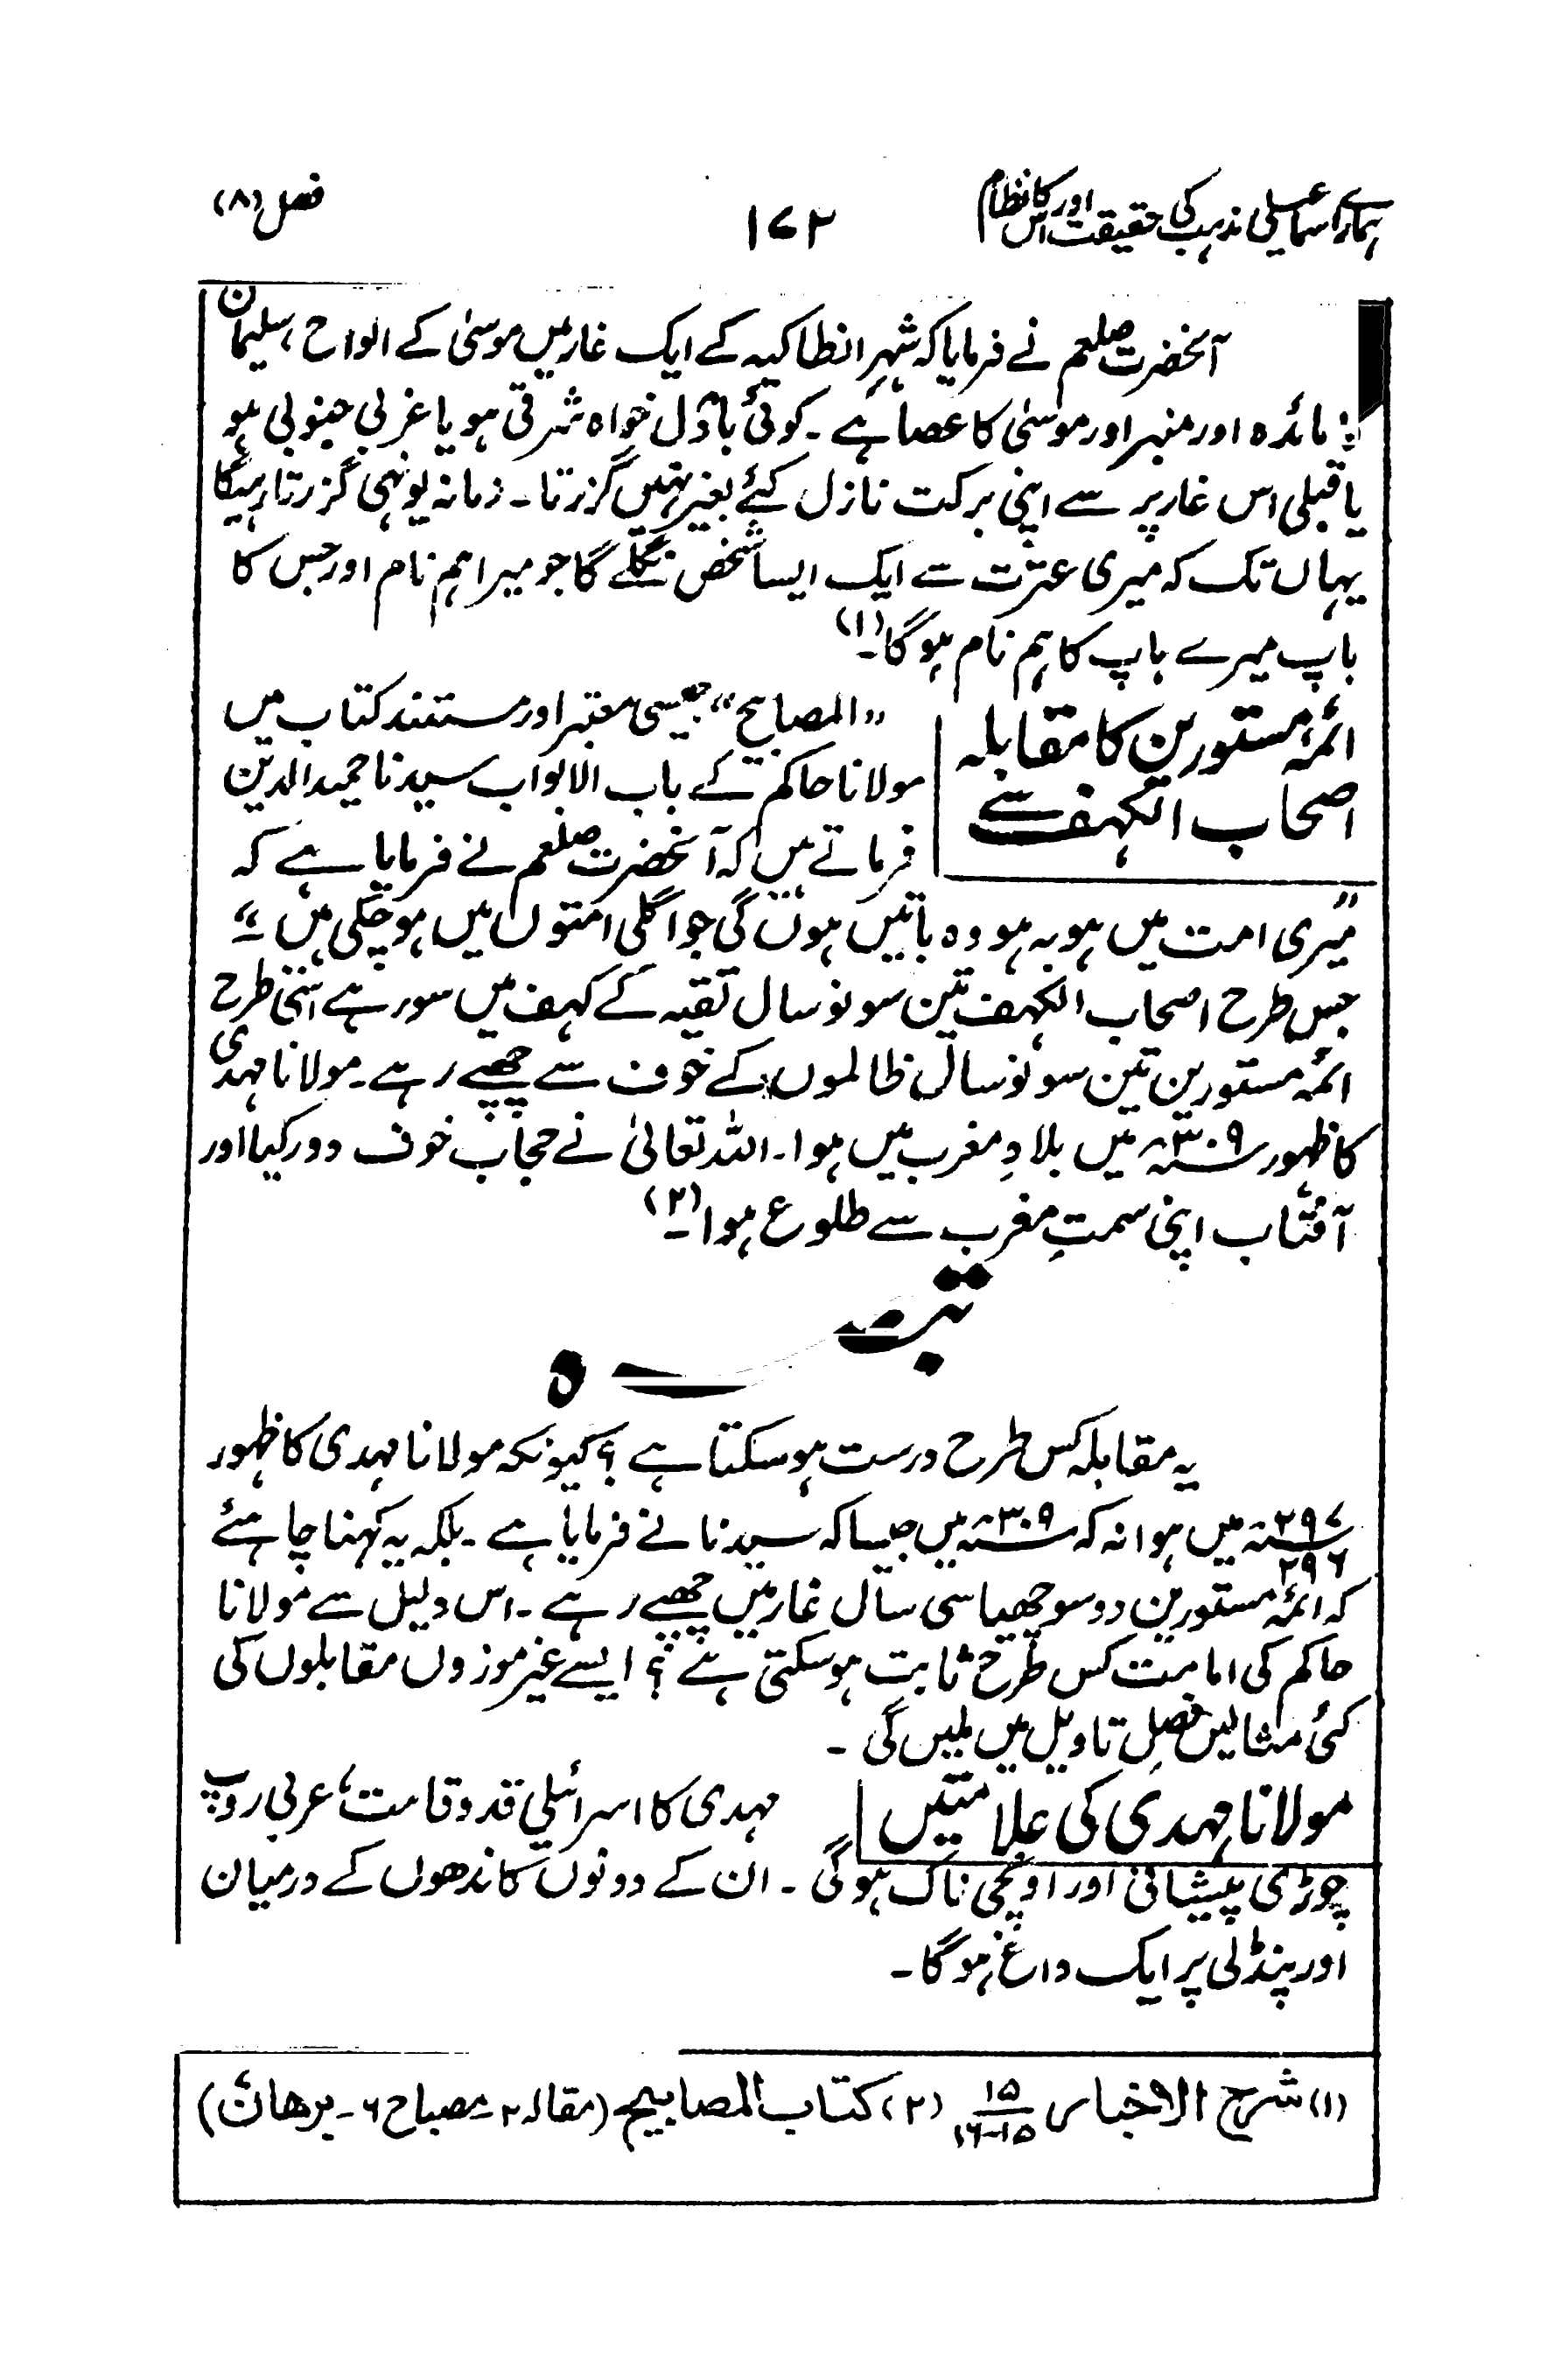 ہمارے اسماعیلی مذہب کی حقیقت اور اس کا نظام
۱۷۲
فصل (۸)
آنحضرت صلعم نے فرمایا کہ شہرِ انطاکیہ کے ایک غار میں موسیٰ کے الواح، سلیمان
کا مائدہ اور منبر اور موسیٰ کا عصا ہے۔ کوئی بادل خواہ شرقی ہو یا غربی جنوبی ہو
یا قبلی اس غار پر سے اپنی برکت نازل کیئے بغیر نہیں گزرتا۔ زمانہ یونہی گزرتا رہیگا
یہاں تک کہ میری عترت سے ایک ایسا شخص نکلے گا جو میرا ہم نام اور جس کا
باپ میرے باپ کا ہم نام ہوگا۔(۱)
ائمۂ مستورین کا مقابلہ
اصحاب الکہف سے
"المصابیح" جیسی معتبر اور مستند کتاب میں
مولانا حاکم کے باب الابواب سیدنا حمید الدین
فرماتے ہیں کہ آنحضرت صلعم نے فرمایا ہے کہ
"میری امت میں ہو بہ ہو وہ باتیں ہوں گی جو اگلی امتوں میں ہو چکی ہیں"۔
جس طرح اصحاب الکہف تین سو نو سال تقیہ کے کہف میں سو رہے اسی طرح
ائمۂ مستورین تین سو نو سال ظالموں کے خوف سے چھپے رہے۔ مولانا مہدی
کا ظہور سنہ ۳۰۹ھ میں بلادِ مغرب میں ہوا۔ اللہ تعالیٰ نے حجاب خوف دور کیا اور
آفتاب اپنی سمتِ مغرب سے طلوع ہوا۔(۲)
تبصرہ
یہ مقابلہ کس طرح درست ہو سکتا ہے؟ کیونکہ مولانا مہدی کا ظہور
سنہ ۲۹۷/۲۹۶ھ میں ہوا نہ کہ سنہ ۳۰۹ھ میں جیسا کہ سیدنا نے فرمایا ہے۔ بلکہ یہ کہنا چاہئے
کہ ائمۂ مستورین دو سو چھیاسی سال غار میں چھپے رہے۔ اس دلیل سے مولانا
حاکم کی امامت کس طرح ثابت ہو سکتی ہے؟ ایسے غیر موزوں مقابلوں کی
کئی مثالیں فصلِ تاویل میں ملیں گی۔
مولانا مہدی کی علامتیں
مہدی کا اسرائیلی قد و قامت، عربی روپ
چوڑی پیشانی اور اونچی ناک ہوگی۔ ان کے دونوں کاندھوں کے درمیان
اور پنڈلی پر ایک داغ ہوگا۔
(۱) شرح الاخبار ۱۵/۱۵-۱۶ (۲) کتاب المصابیح (مقالہ ۲۔ مصباح ۶۔ برھان)